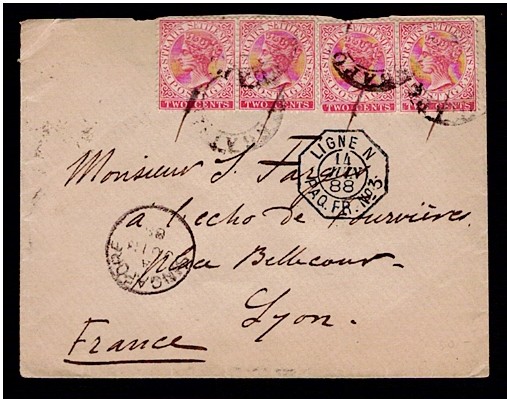 STRAITS SETTLEMENTS POSTAGE
TWO CENTS
STRAITS SETTLEMENTS POSTAGE
TWO CENTS
STRAITS SETTLEMENTS POSTAGE
TWO CENTS
STRAITS SETTLEMENTS POSTAGE
TWO CENTS
LIGNE N
14
JUIN
88
PAQ. FR. No 3.
Monsieur J.
a l'echo de Fourvières
Place Bellecour-
Lyon.
France
SINGAPORE